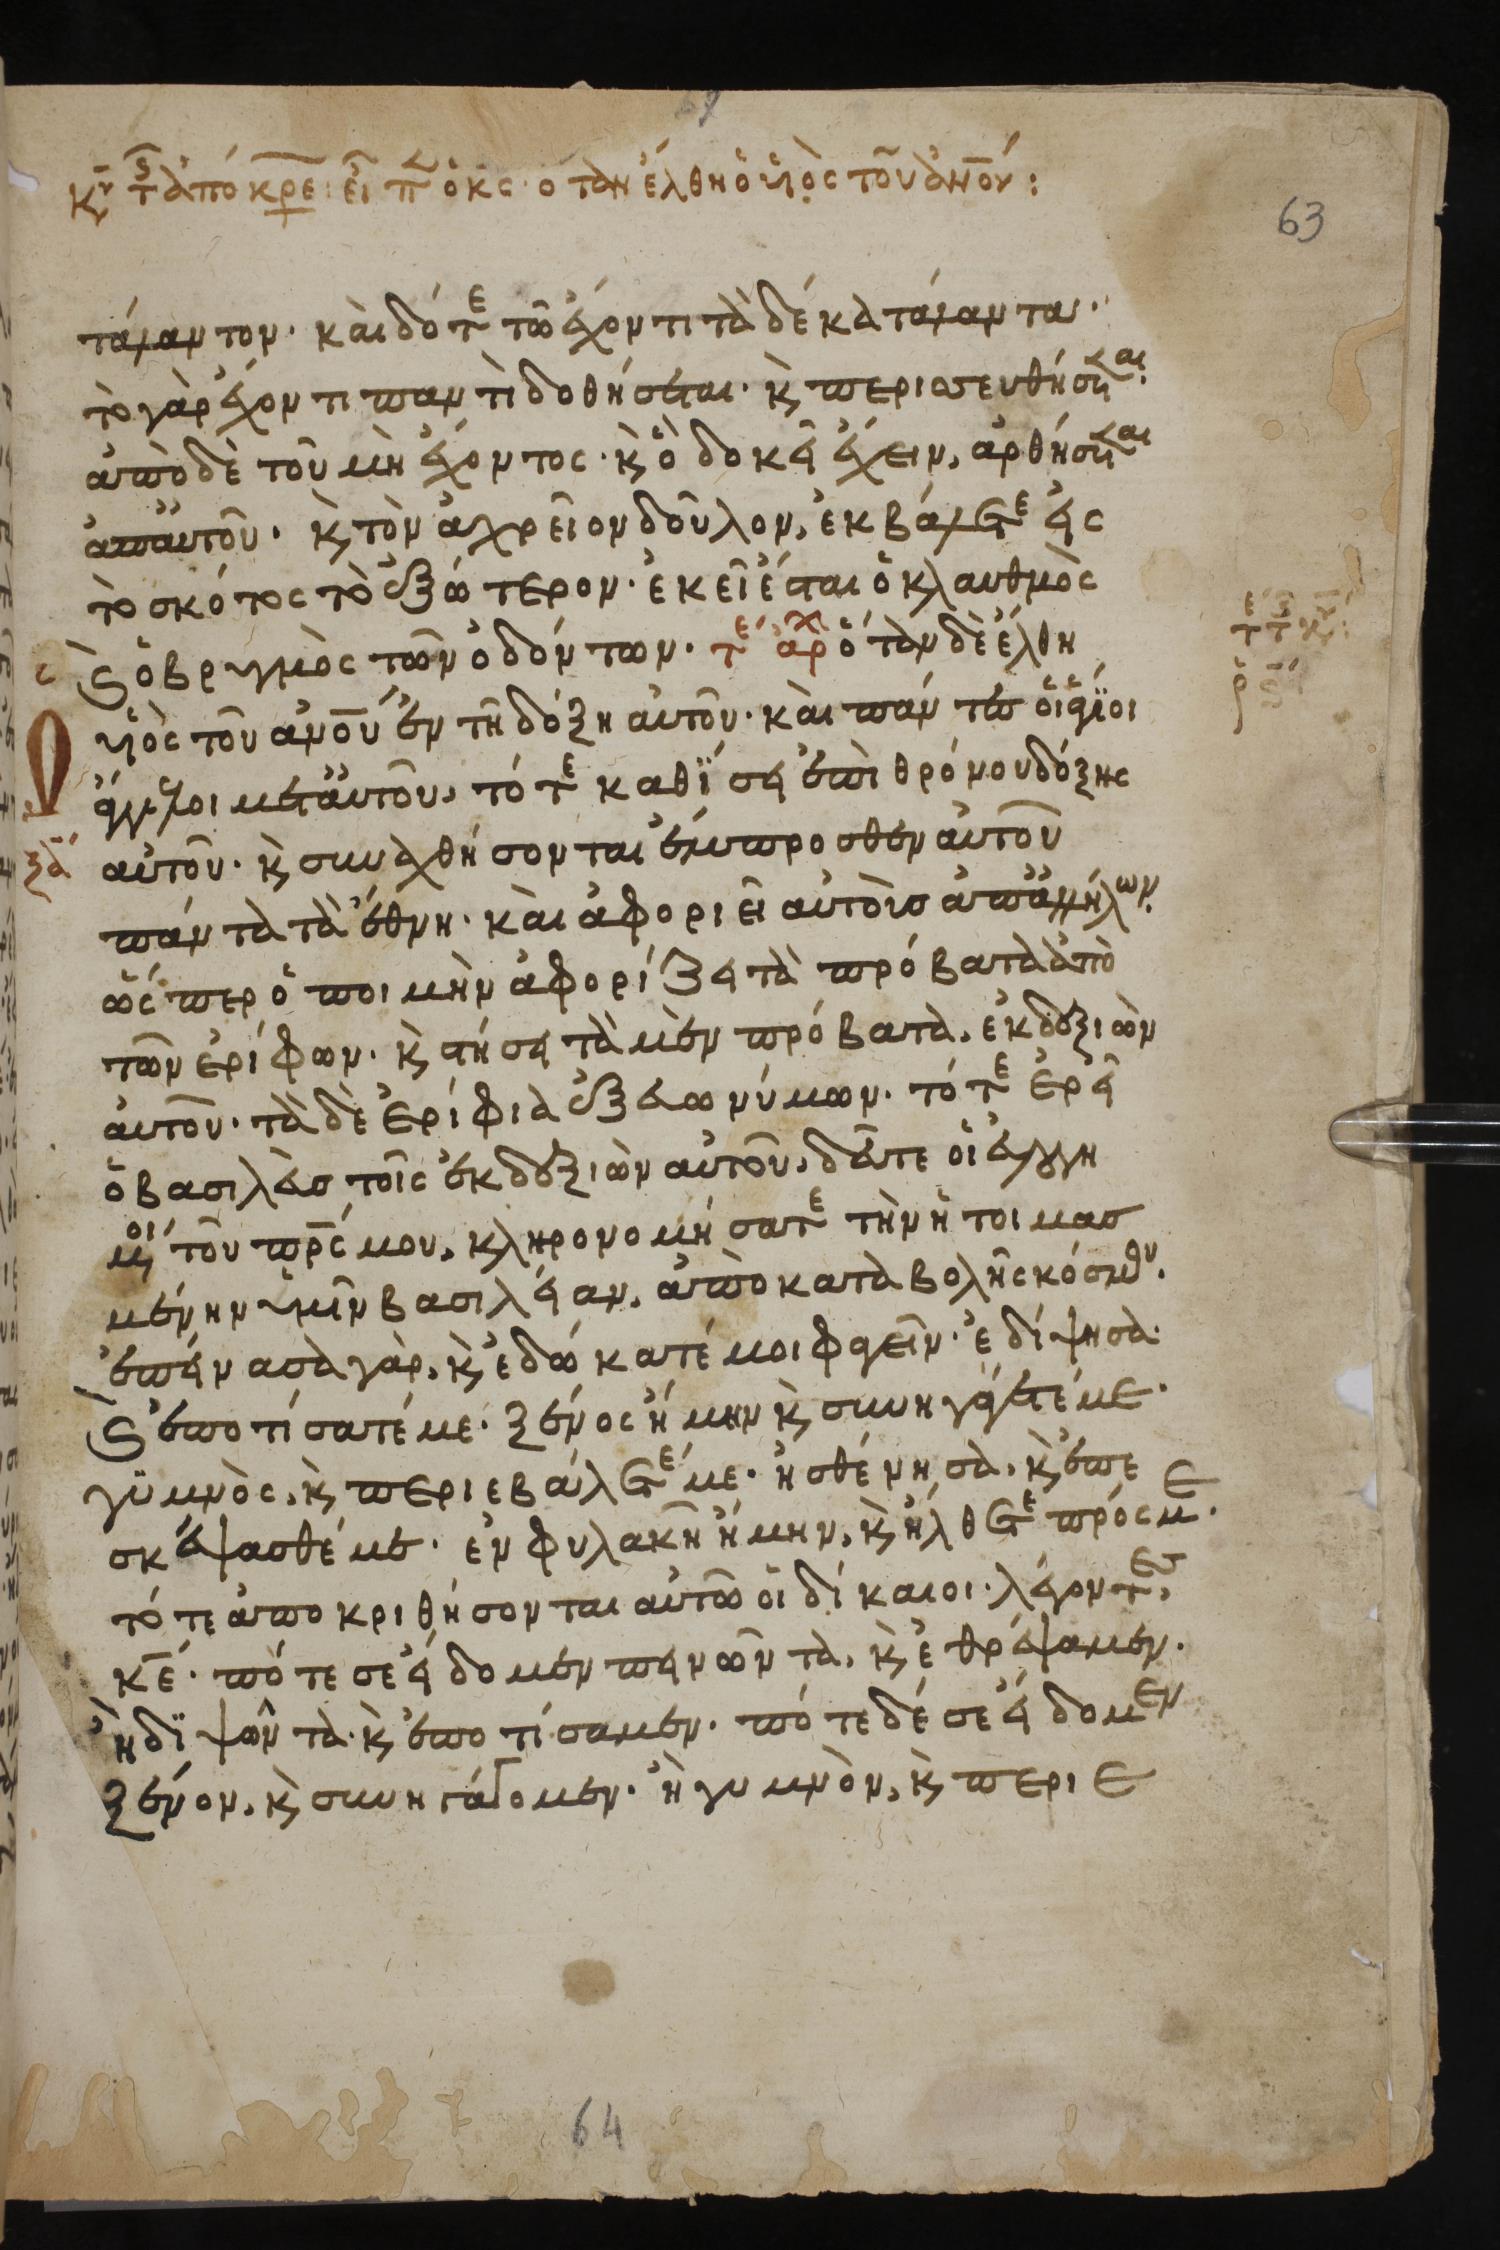 Κυ τ ἀπόκρε εἶ π ὁ κς ὅταν ἔλθη ὁ υἱὸς τοῦ ἀνου:
63
τάλαντον· καὶ δότε τῶ ἔχοντι τὰ δέκα τάλαντα·
τὸ γὰρ ἔχοντι παντὶ δοθήσεται· κ περισσευθήσεται·
ἀπὸ δὲ τοῦ μὴ ἔχοντος· κ ὃ δοκεῖ ἔχειν, ἀρθήσεται
ἀπαὐτοῦ· κ τὸν ἀχρεῖον δοῦλον, ἐκβάλλετε εἰς
τὸ σκότος τὸ ἐξώτερον· ἐκεῖ ἔσται ὁ κλαυθμὸς
κ ὁ βρυγμὸς τῶν ὀδόντων· τε αρχ ὅταν δὲ ἔλθη
ὁ υἱὸς τοῦ ἀνου ἐν τῆ δόξη αὐτοῦ· καὶ πάντες οἱ ἅγιοι
ἄγγελοι μεταὐτοῦ, τότε καθίσει ἐπι θρόνου δόξης
ξδ
αὐτοῦ· κ συναχθήσονται ἔμπροσθεν αὐτοῦ
πάντα τὰ ἔθνη· καὶ ἀφοριεῖ αὐτοὺσ ἀπἀλλήλων·
ὥσπερ ὁ ποιμὴν ἀφορίζει τὰ πρόβατα ἀπὸ
τῶν ἐρίφων· κ στήσει τὰ μὲν πρόβατα, ἐκ δεξιῶν
αὐτοῦ· τὰ δὲ ἐρίφια ἐξ εωνύμων· τότε ἐρεῖ
ὁ βασιλεὺσ τοῖς ἐκ δεξιῶν αὐτοῦ, δεῦτε οἱ εὐλογη
μένοι τοῦ πρς μου, κληρονομήσατε τὴν ἡτοιμασ
μένην ὑμῖν βασιλείαν, ἀπὸ καταβολῆς κόσμου·
ἐπείνασα γὰρ, κ ἐδώκατέ μοι φαγεῖν· ἐδίψησα·
κ ἐποτίσατέ με· ξένος ἤμην κ συνηγάγετέ με·
γϋμνὸς, κ περιεβάλετέ με· ἠσθένησα, κ ἐπε
σκέψασθέ με· ἐν φυλακῆ ἤμην, κ ἤλθετε πρός με·
τότε ἀποκριθήσονται αὐτῶ οἱ δίκαιοι· λέγοντες,
κε· πότε σε εἴδομεν πεινῶντα, κ ἐθρέψαμεν·
ἢ διψῶντα· κ ἐποτίσαμεν· πότε δέ σε εἴδομεν
ξένον, κ συνηγάγομεν· ἢ γυμνὸν, κ περιε
64